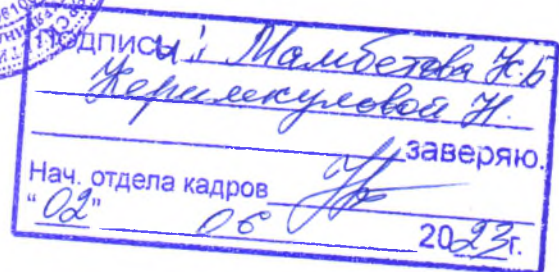 Подписи: Мамбетова Ж.Б
Керимкуловой Н.
заверяю.
Нач. отдела кадров
"02" 06 2023г.